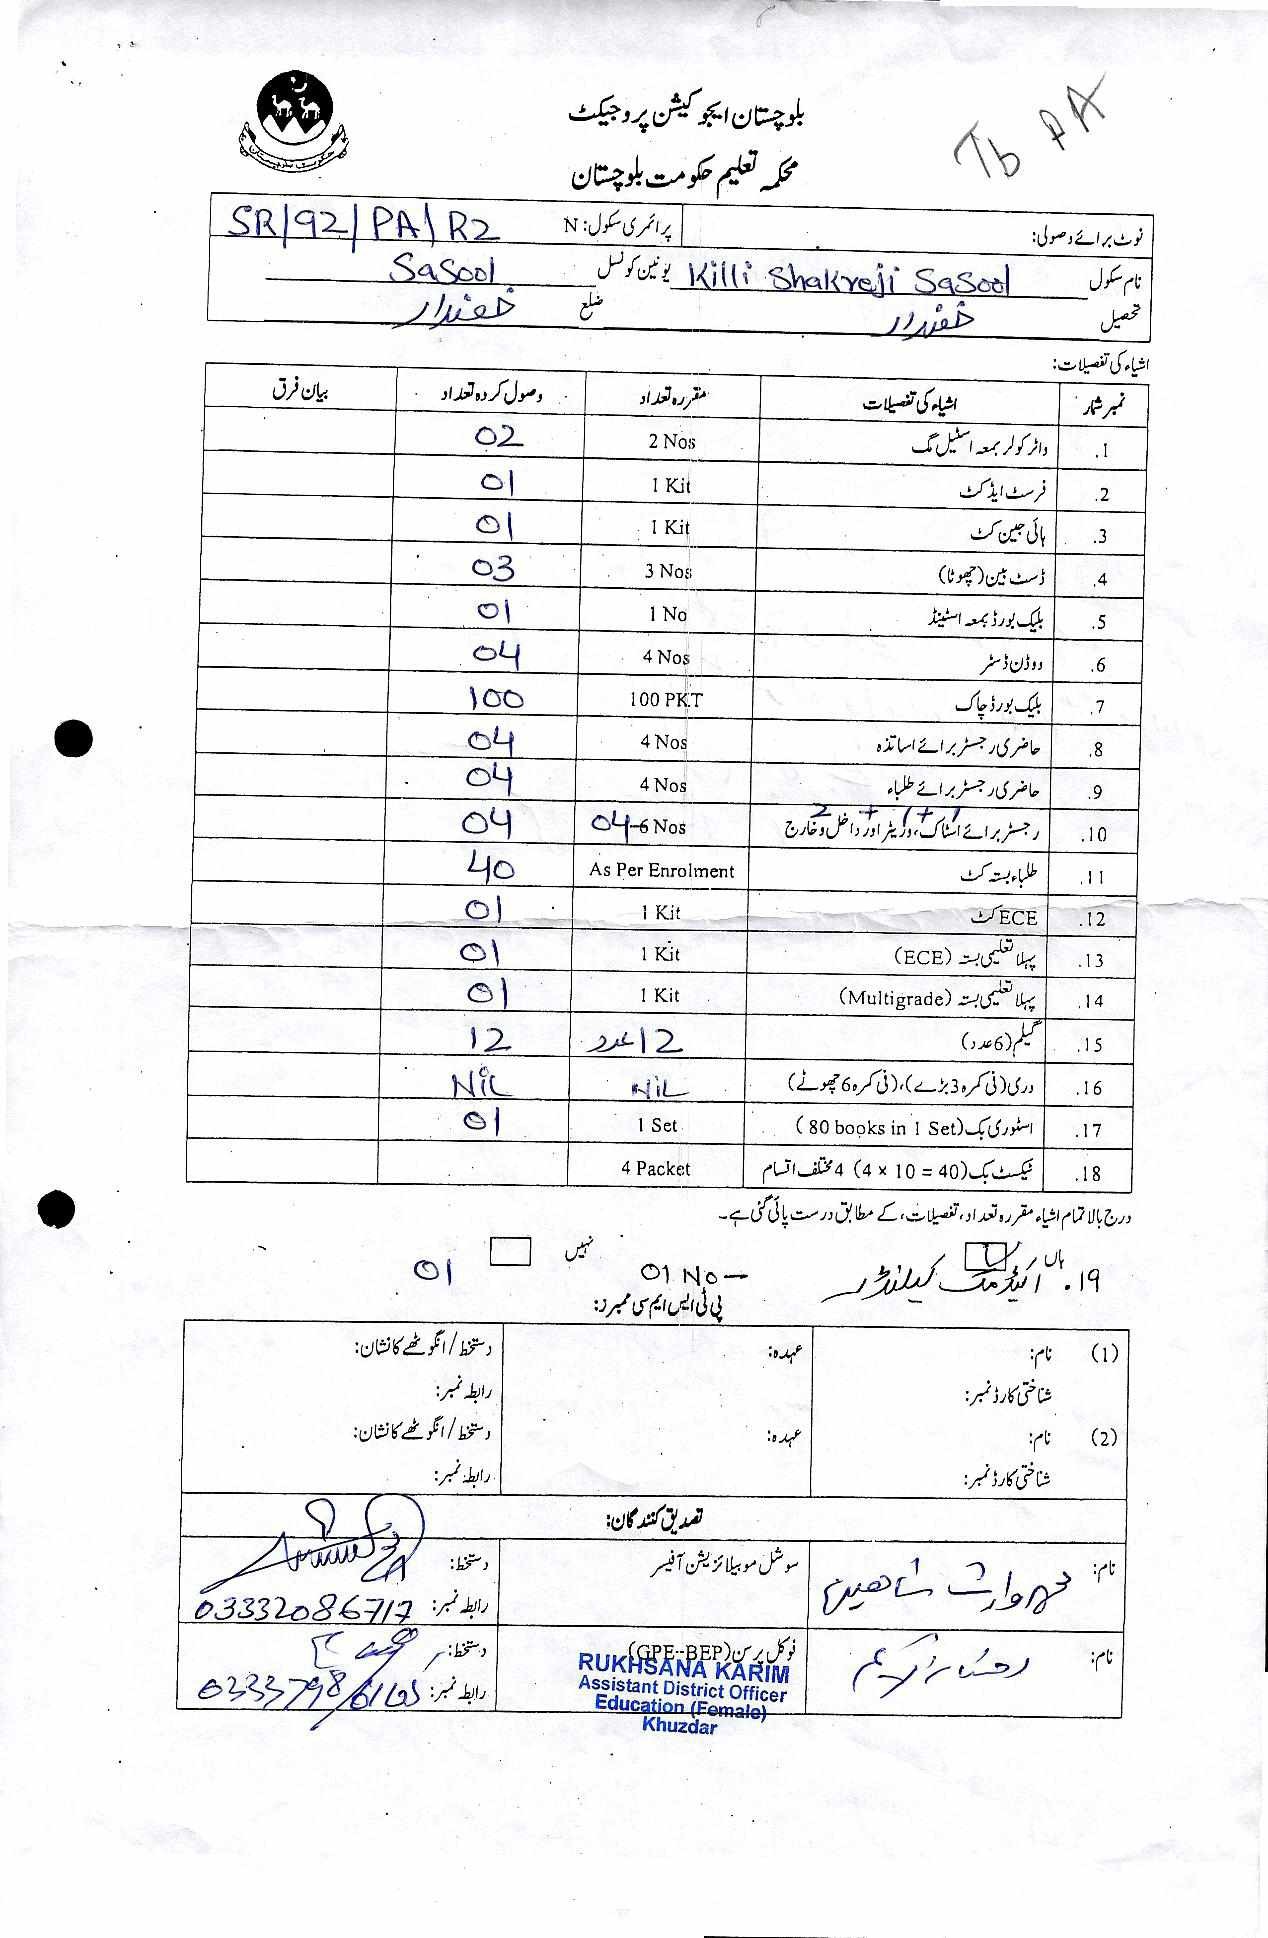 Tb PA
بلوچستان ایجوکیشن پروجیکٹ
محکمہ تعلیم حکومت بلوچستان
نوٹ برائے وصولی: پرائمری سکول: N SR/92/PA/R2
نام سکول Killi Shakreji Sasool یونین کونسل Sasool
تحصیل خضدار ضلع خضدار
اشیاء کی تفصیلات:
نمبر شمار اشیاء کی تفصیلات مقررہ تعداد وصول کردہ تعداد بیان فرق
1. واٹر کولر بمعہ اسٹیل مگ 2 Nos 02
2. فرسٹ ایڈ کٹ 1 Kit 01
3. ہائی جین کٹ 1 Kit 01
4. ڈسٹ بین (چھوٹا) 3 Nos 03
5. بلیک بورڈ بمعہ اسٹینڈ 1 No 01
6. ووڈن ڈسٹر 4 Nos 04
7. بلیک بورڈ چاک 100 PKT 100
8. حاضری رجسٹر برائے اساتذہ 4 Nos 04
9. حاضری رجسٹر برائے طلباء 4 Nos 04
2 + 1 + 1
10. رجسٹر برائے اسٹاک، وزیٹر اور داخل و خارج 04-6 Nos 04
11. طلباء بستہ کٹ As Per Enrolment 40
12. ECE کٹ 1 Kit 01
13. پہلا تعلیمی بستہ (ECE) 1 Kit 01
14. پہلا تعلیمی بستہ (Multigrade) 1 Kit 01
15. گیلم (6 عدد) 12 عدد 12
16. دری (فی کمرہ 3 بڑے)، (فی کمرہ 6 چھوٹے) NiL NiL
17. اسٹوری بک (80 books in 1 Set) 1 Set 01
18. ٹیکسٹ بک (4 x 10 = 40) 4 مختلف اقسام 4 Packet
درج بالا تمام اشیاء مقررہ تعداد، تفصیلات، کے مطابق درست پائی گئی ہے۔
ہاں نہیں
19. کیلنڈر 01 No — 01
پی ٹی ایس ایم سی ممبرز:
(1) نام: عہدہ: دستخط / انگوٹھے کا نشان:
شناختی کارڈ نمبر: رابطہ نمبر:
(2) نام: عہدہ: دستخط / انگوٹھے کا نشان:
شناختی کارڈ نمبر: رابطہ نمبر:
تصدیق کنندگان:
نام: محمد وارث شاھین سوشل موبیلائزیشن آفیسر دستخط:
رابطہ نمبر: 03332086717
نام: رخسانہ کریم فوکل پرسن (GPE-BEP) دستخط:
رابطہ نمبر:
RUKHSANA KARIM
Assistant District Officer
Education (Female)
Khuzdar